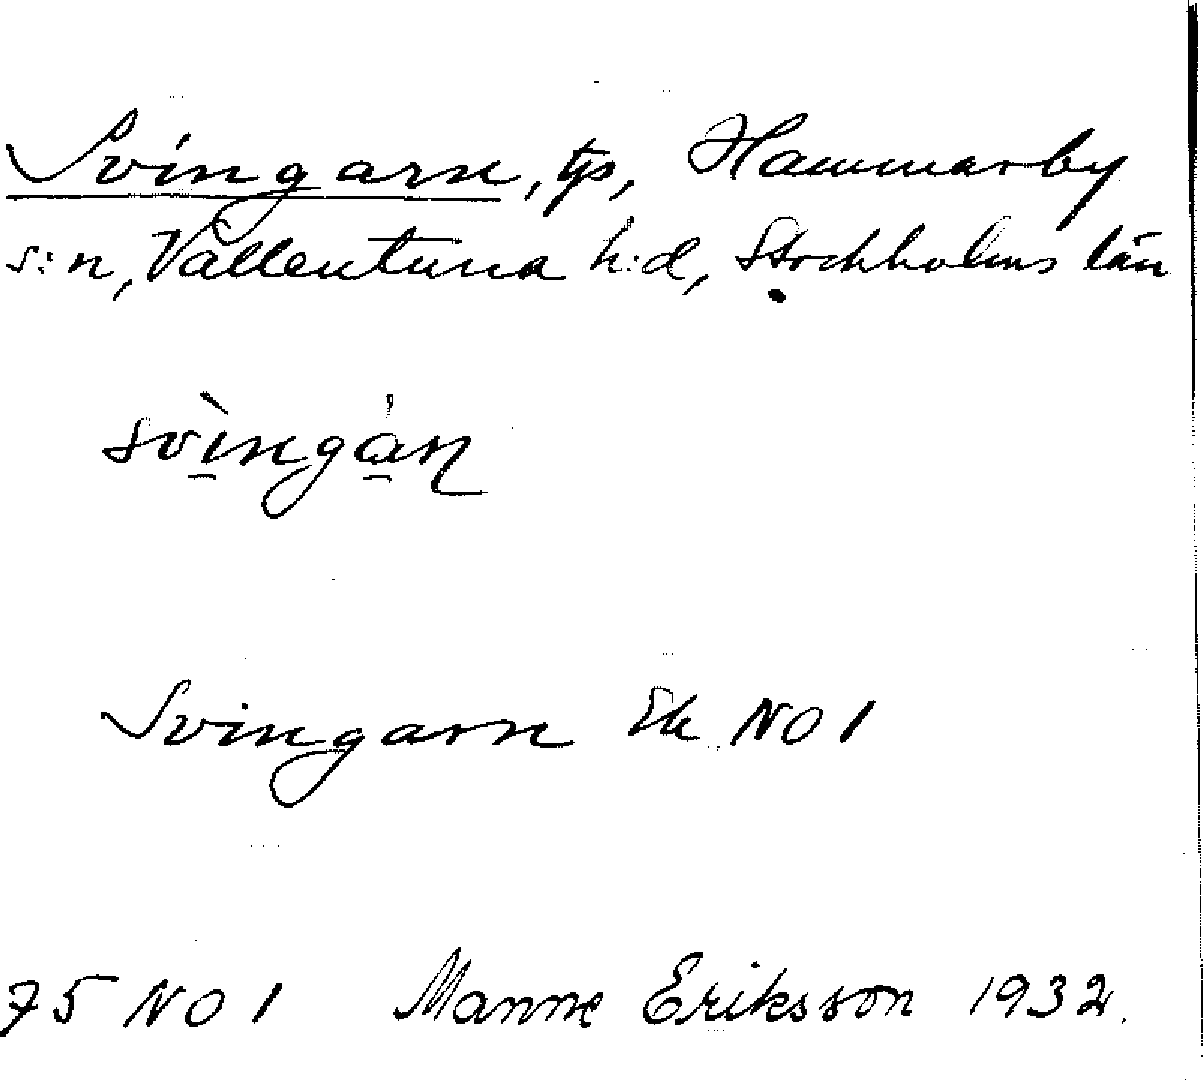 Svingarn, tp, Hammarby
s:n, Vallentuna h:d, Stockholms län
svìngàɳ
Svingarn Ek NO 1
75 NO 1 Manne Eriksson 1932.